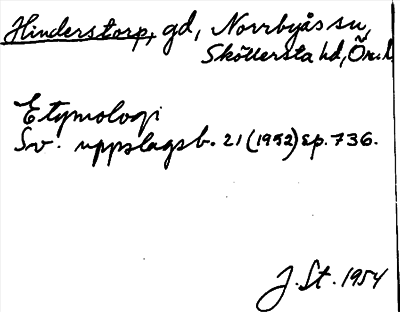 Hinderstorp, gd, Norrbyås sn,
Sköllersta hd, Ör. l
Etymologi
Sv. uppslagsb. 21 (1952) sp. 736.
J. St. 1954